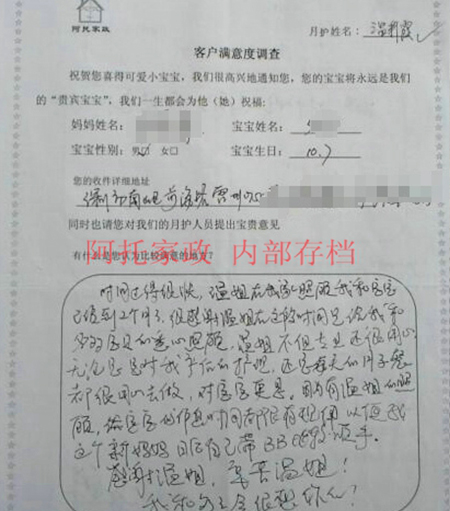 阿托家政
月护姓名：温
客户满意度调查
祝贺您喜得可爱小宝宝，我们很高兴地通知您，您的宝宝将永远是我们
的“贵宾宝宝”，我们一生都会为他（她）祝福：
妈妈姓名：
宝宝姓名：
宝宝性别：男☑ 女□
宝宝生日：10.7
您的收件详细地址
深圳市南山区前海路
同时也请您对我们的月护人员提出宝贵意见
阿托家政 内部存档
有什么是您认为比较满意的地方？
时间过得很快，温姐在我家照顾我和宝宝
已经到2个月了，很感谢温姐在这段时间里给我和
宝宝的悉心照顾，温姐不但专业还很用心
无论是对我产后的护理，还是每天的月子餐
都很用心去做，对宝宝更是。因为有温姐的照
顾，宝宝的作息时间都很有规律，以便我
这个新妈妈日后自己带BB
感谢温姐，辛苦温姐！
我和宝宝会很想你！